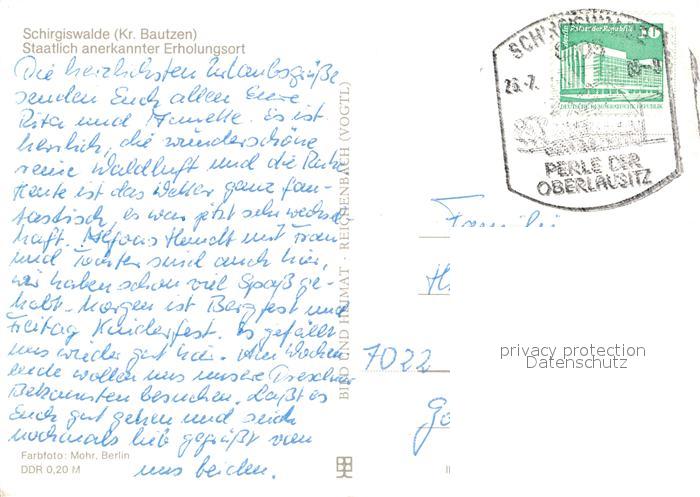 Schirgiswalde (Kr. Bautzen)
Staatlich anerkannter Erholungsort
Die herzlichsten Urlaubsgrüße
senden Euch allen Eure
Rita und Annette. Es ist
herrlich, die wunderschöne
reine Waldluft und die Ruhe
Heute ist das Wetter ganz fan-
tastisch, es war jetzt sehr wechsel-
haft. Handt mit Frau
und Tochter sind auch hier,
wir haben schon viel Spaß ge-
habt. Morgen ist Bergfest und
Freitag Kinderfest. Es gefällt
uns wieder gut hier. Am Wochen
ende wollen uns unsere Dresdner
Bekannten besuchen. Laßt es
Euch gut gehen und seid
nochmals lieb gegrüßt von
uns beiden.
Farbfoto: Mohr, Berlin
DDR 0,20 M
BILD UND HEIMAT · REICHENBACH (VOGTL)
SCHIRGISWALDE
26.-7.
PERLE DER
OBERLAUSITZ
Palast der Republik
10
DEUTSCHE DEMOKRATISCHE REPUBLIK
Familie
7022
privacy protection
Datenschutz